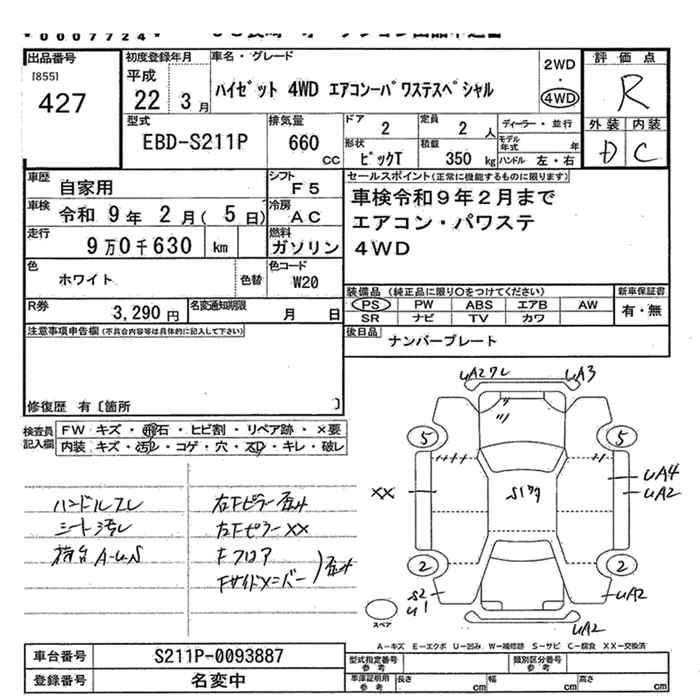 *0007724*
出品番号
[855]
427
初度登録年月
平成
22 3月
車名・グレード
ハイゼット 4WD エアコンーパワステスペシャル
2WD
・
4WD
評価点
R
外装 内装
D C
型式
EBD-S211P
排気量
660
CC
ドア
2
定員
2人
ディーラー・並行
モデル年式 年
形状
ピックT
積載
350 kg
ハンドル 左・右
車歴
自家用
シフト
F5
車検
令和 9年 2月( 5日)
冷房
AC
走行
9万0千630 km
燃料
ガソリン
色
ホワイト
色替
色コード
W20
R券
3,290円
名変通知期限
月 日
セールスポイント(正常に機能するものに限ります)
車検令和9年2月まで
エアコン・パワステ
4WD
装備品 (純正品に限り○をつけてください)
PS PW ABS エアB AW
SR ナビ TV カワ
新車保証書
有・無
後日品
ナンバープレート
注意事項申告欄(不具合内容等は具体的に記入して下さい)
修復歴 有〔箇所 〕
検査員記入欄
FW キズ・飛石・ヒビ割・リペア跡・×要
内装 キズ・汚レ・コゲ・穴・スレ・キレ・破レ
ハンドルスレ
シート汚レ
荷台 A-U-S
右Fピラー歪ミ
右Fピラー XX
Fフロア
Fサイドメンバー
歪ミ
UA2ワレ
UA3
5
5
XX
UA4
UA2
2
2
S2
U1
UA2
UA2
スペア
A-キズ E-エクボ U-凹み W-補修跡 S-サビ C-腐食 XX-交換済
車台番号
S211P-0093887
登録番号
名変中
型式指定番号
参考
類別区分番号
参考
車庫証明用
参考
長さ cm
幅 cm
高さ cm